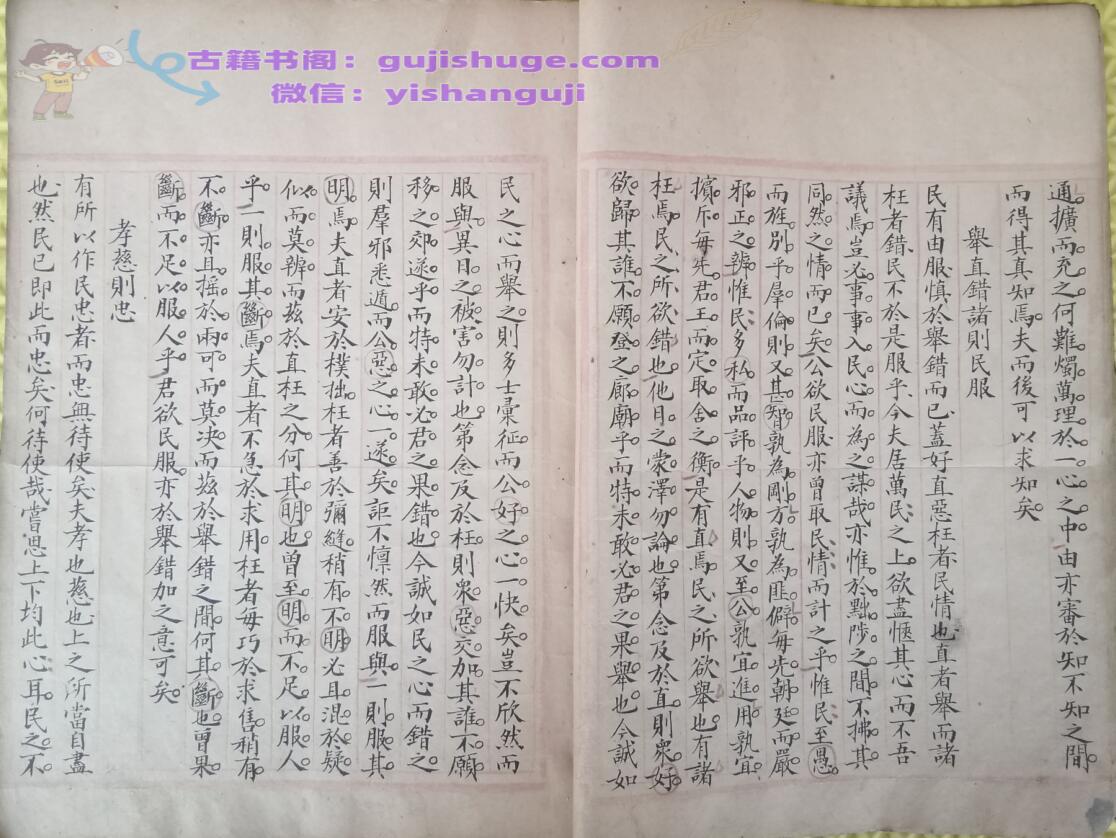 古籍书阁：gujishuge.com
微信：yishanguji
通擴而充之何難燭萬理於一心之中由亦審於知不知之間
而得其真知焉夫而後可以求知矣
舉直錯諸則民服
民有由服慎於舉錯而已蓋好直惡枉者民情也直者舉而諸
枉者錯民不於是服乎今夫居萬民之上欲盡愜其心而不吾
議焉豈必事事入民心而為之謀哉亦惟於黜陟之間不拂其
同然之情而已矣公欲民服亦曾取民情而計之乎惟民至愚
而旌別乎羣倫則又甚智孰為剛方孰為匪僻每先朝廷而嚴
邪正之辨惟民多私而品評乎人物則又至公孰宜進用孰宜
擯斥每先君王而定取舍之衡是有直焉民之所欲舉也有諸
枉焉民之所欲錯也他日之蒙澤勿論也第念及於直則衆好
欲歸其誰不願登之廊廟乎而特未敢必君之果舉也今誠如
民之心而舉之則多士彙征而公好之心一快矣豈不欣然而
服與異日之被害勿計也第念及於枉則衆惡交加其誰不願
移之郊遂乎而特未敢必君之果錯也今誠如民之心而錯之
則羣邪悉遁而公惡之心一遂矣詎不懔然而服與一則服其
明焉夫直者安於樸拙枉者善於彌縫稍有不明必耳混於疑
似而莫辨而兹於直枉之分何其明也曾至明而不足以服人
乎一則服其斷焉夫直者不急於求用枉者每巧於求售稍有
不斷亦且摇於兩可而莫决而兹於舉錯之間何其斷也曾果
斷而不足以服人乎君欲民服亦於舉錯加之意可矣
孝慈則忠
有所以作民忠者而忠無待使矣夫孝也慈也上之所當自盡
也然民已即此而忠矣何待使哉嘗思上下均此心耳民之不